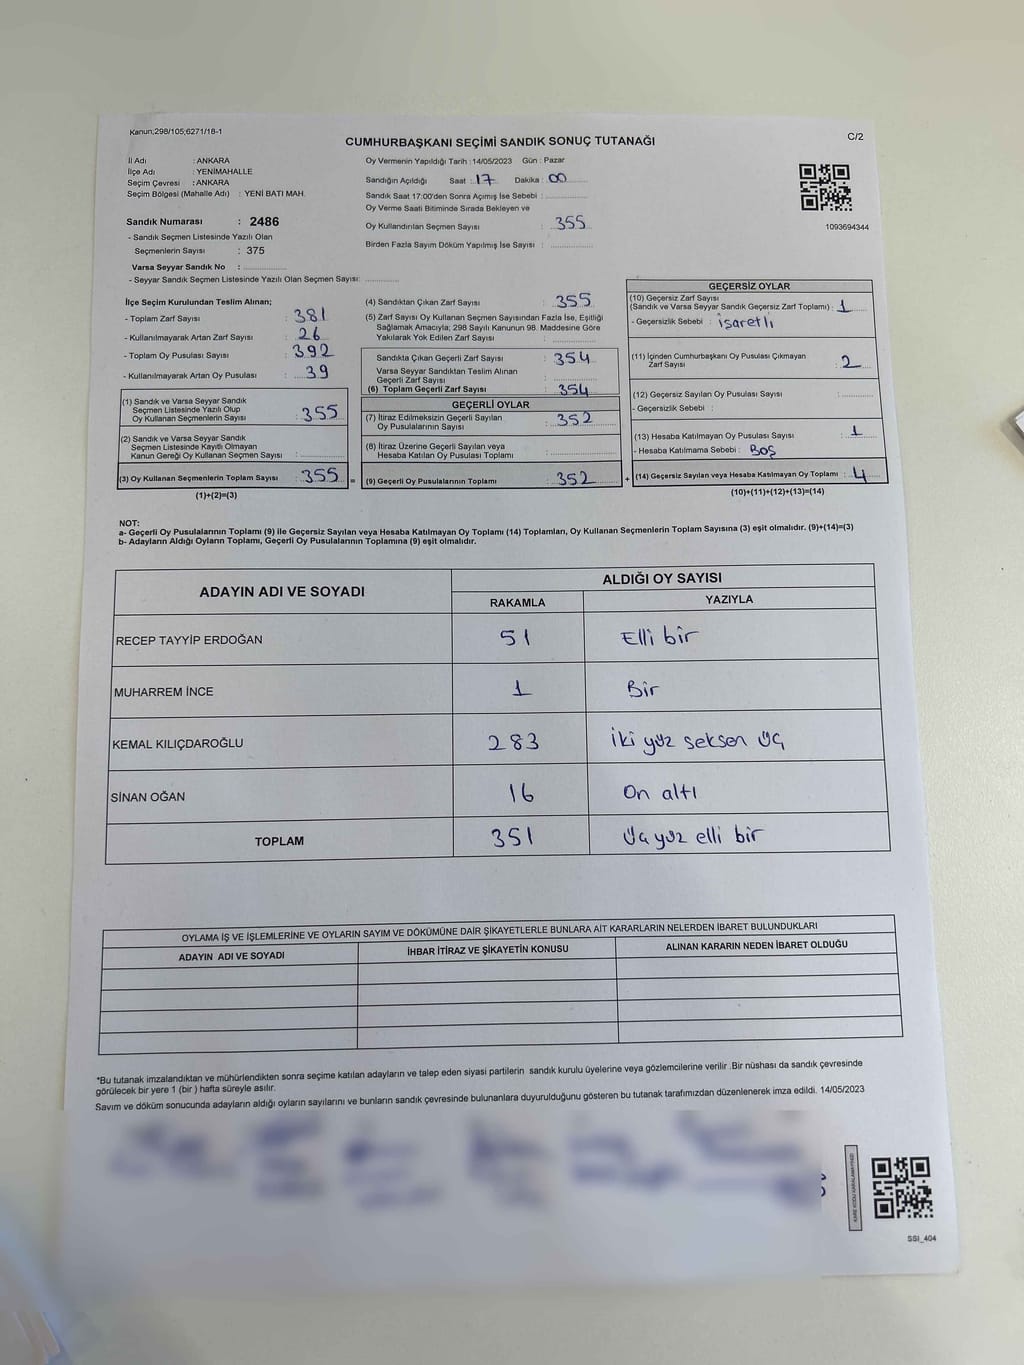 Kanun;298/105;6271/18-1
CUMHURBAŞKANI SEÇİMİ SANDIK SONUÇ TUTANAĞI
C/2
İl Adı : ANKARA
İlçe Adı : YENİMAHALLE
Seçim Çevresi : ANKARA
Seçim Bölgesi (Mahalle Adı) : YENİ BATI MAH.
Sandık Numarası : 2486
- Sandık Seçmen Listesinde Yazılı Olan
Seçmenlerin Sayısı : 375
Varsa Seyyar Sandık No :
- Seyyar Sandık Seçmen Listesinde Yazılı Olan Seçmen Sayısı:
Oy Vermenin Yapıldığı Tarih : 14/05/2023 Gün : Pazar
Sandığın Açıldığı Saat : 17 Dakika : 00
Sandık Saat 17:00'den Sonra Açımış İse Sebebi :
Oy Verme Saati Bitiminde Sırada Bekleyen ve
Oy Kullandırılan Seçmen Sayısı : 355
Birden Fazla Sayım Döküm Yapılmış İse Sayısı :
1093694344
İlçe Seçim Kurulundan Teslim Alınan;
- Toplam Zarf Sayısı : 381
- Kullanılmayarak Artan Zarf Sayısı : 26
- Toplam Oy Pusulası Sayısı : 392
- Kullanılmayarak Artan Oy Pusulası : 39
(1) Sandık ve Varsa Seyyar Sandık
Seçmen Listesinde Yazılı Olup
Oy Kullanan Seçmenlerin Sayısı : 355
(2) Sandık ve Varsa Seyyar Sandık
Seçmen Listesinde Kayıtlı Olmayan
Kanun Gereği Oy Kullanan Seçmen Sayısı :
(3) Oy Kullanan Seçmenlerin Toplam Sayısı : 355
(1)+(2)=(3)
(4) Sandıktan Çıkan Zarf Sayısı : 355
(5) Zarf Sayısı Oy Kullanan Seçmen Sayısından Fazla İse, Eşitliği
Sağlamak Amacıyla; 298 Sayılı Kanunun 98. Maddesine Göre
Yakılarak Yok Edilen Zarf Sayısı :
Sandıkta Çıkan Geçerli Zarf Sayısı : 354
Varsa Seyyar Sandıktan Teslim Alınan
Geçerli Zarf Sayısı :
(6) Toplam Geçerli Zarf Sayısı : 354
GEÇERLİ OYLAR
(7) İtiraz Edilmeksizin Geçerli Sayılan
Oy Pusulalarının Sayısı : 352
(8) İtiraz Üzerine Geçerli Sayılan veya
Hesaba Katılan Oy Pusulası Toplamı :
= (9) Geçerli Oy Pusulalarının Toplamı : 352
GEÇERSİZ OYLAR
(10) Geçersiz Zarf Sayısı
(Sandık ve Varsa Seyyar Sandık Geçersiz Zarf Toplamı) : 1
- Geçersizlik Sebebi : işaretli
(11) İçinden Cumhurbaşkanı Oy Pusulası Çıkmayan
Zarf Sayısı : 2
(12) Geçersiz Sayılan Oy Pusulası Sayısı :
- Geçersizlik Sebebi :
(13) Hesaba Katılmayan Oy Pusulası Sayısı : 1
- Hesaba Katılmama Sebebi : Boş
+ (14) Geçersiz Sayılan veya Hesaba Katılmayan Oy Toplamı : 4
(10)+(11)+(12)+(13)=(14)
NOT:
a- Geçerli Oy Pusulalarının Toplamı (9) ile Geçersiz Sayılan veya Hesaba Katılmayan Oy Toplamı (14) Toplamları, Oy Kullanan Seçmenlerin Toplam Sayısına (3) eşit olmalıdır. (9)+(14)=(3)
b- Adayların Aldığı Oyların Toplamı, Geçerli Oy Pusulalarının Toplamına (9) eşit olmalıdır.
ADAYIN ADI VE SOYADI ALDIĞI OY SAYISI
RAKAMLA YAZIYLA
RECEP TAYYİP ERDOĞAN 51 Elli bir
MUHARREM İNCE 1 Bir
KEMAL KILIÇDAROĞLU 283 iki yüz seksen üç
SİNAN OĞAN 16 On altı
TOPLAM 351 Üç yüz elli bir
OYLAMA İŞ VE İŞLEMLERİNE VE OYLARIN SAYIM VE DÖKÜMÜNE DAİR ŞİKAYETLERLE BUNLARA AİT KARARLARIN NELERDEN İBARET BULUNDUKLARI
ADAYIN ADI VE SOYADI İHBAR İTİRAZ VE ŞİKAYETİN KONUSU ALINAN KARARIN NEDEN İBARET OLDUĞU
*Bu tutanak imzalandıktan ve mühürlendikten sonra seçime katılan adayların ve talep eden siyasi partilerin sandık kurulu üyelerine veya gözlemcilerine verilir .Bir nüshası da sandık çevresinde
görülecek bir yere 1 (bir ) hafta süreyle asılır.
Sayım ve döküm sonucunda adayların aldığı oyların sayılarını ve bunların sandık çevresinde bulunanlara duyurulduğunu gösteren bu tutanak tarafımızdan düzenlenerek imza edildi. 14/05/2023
SSI_404